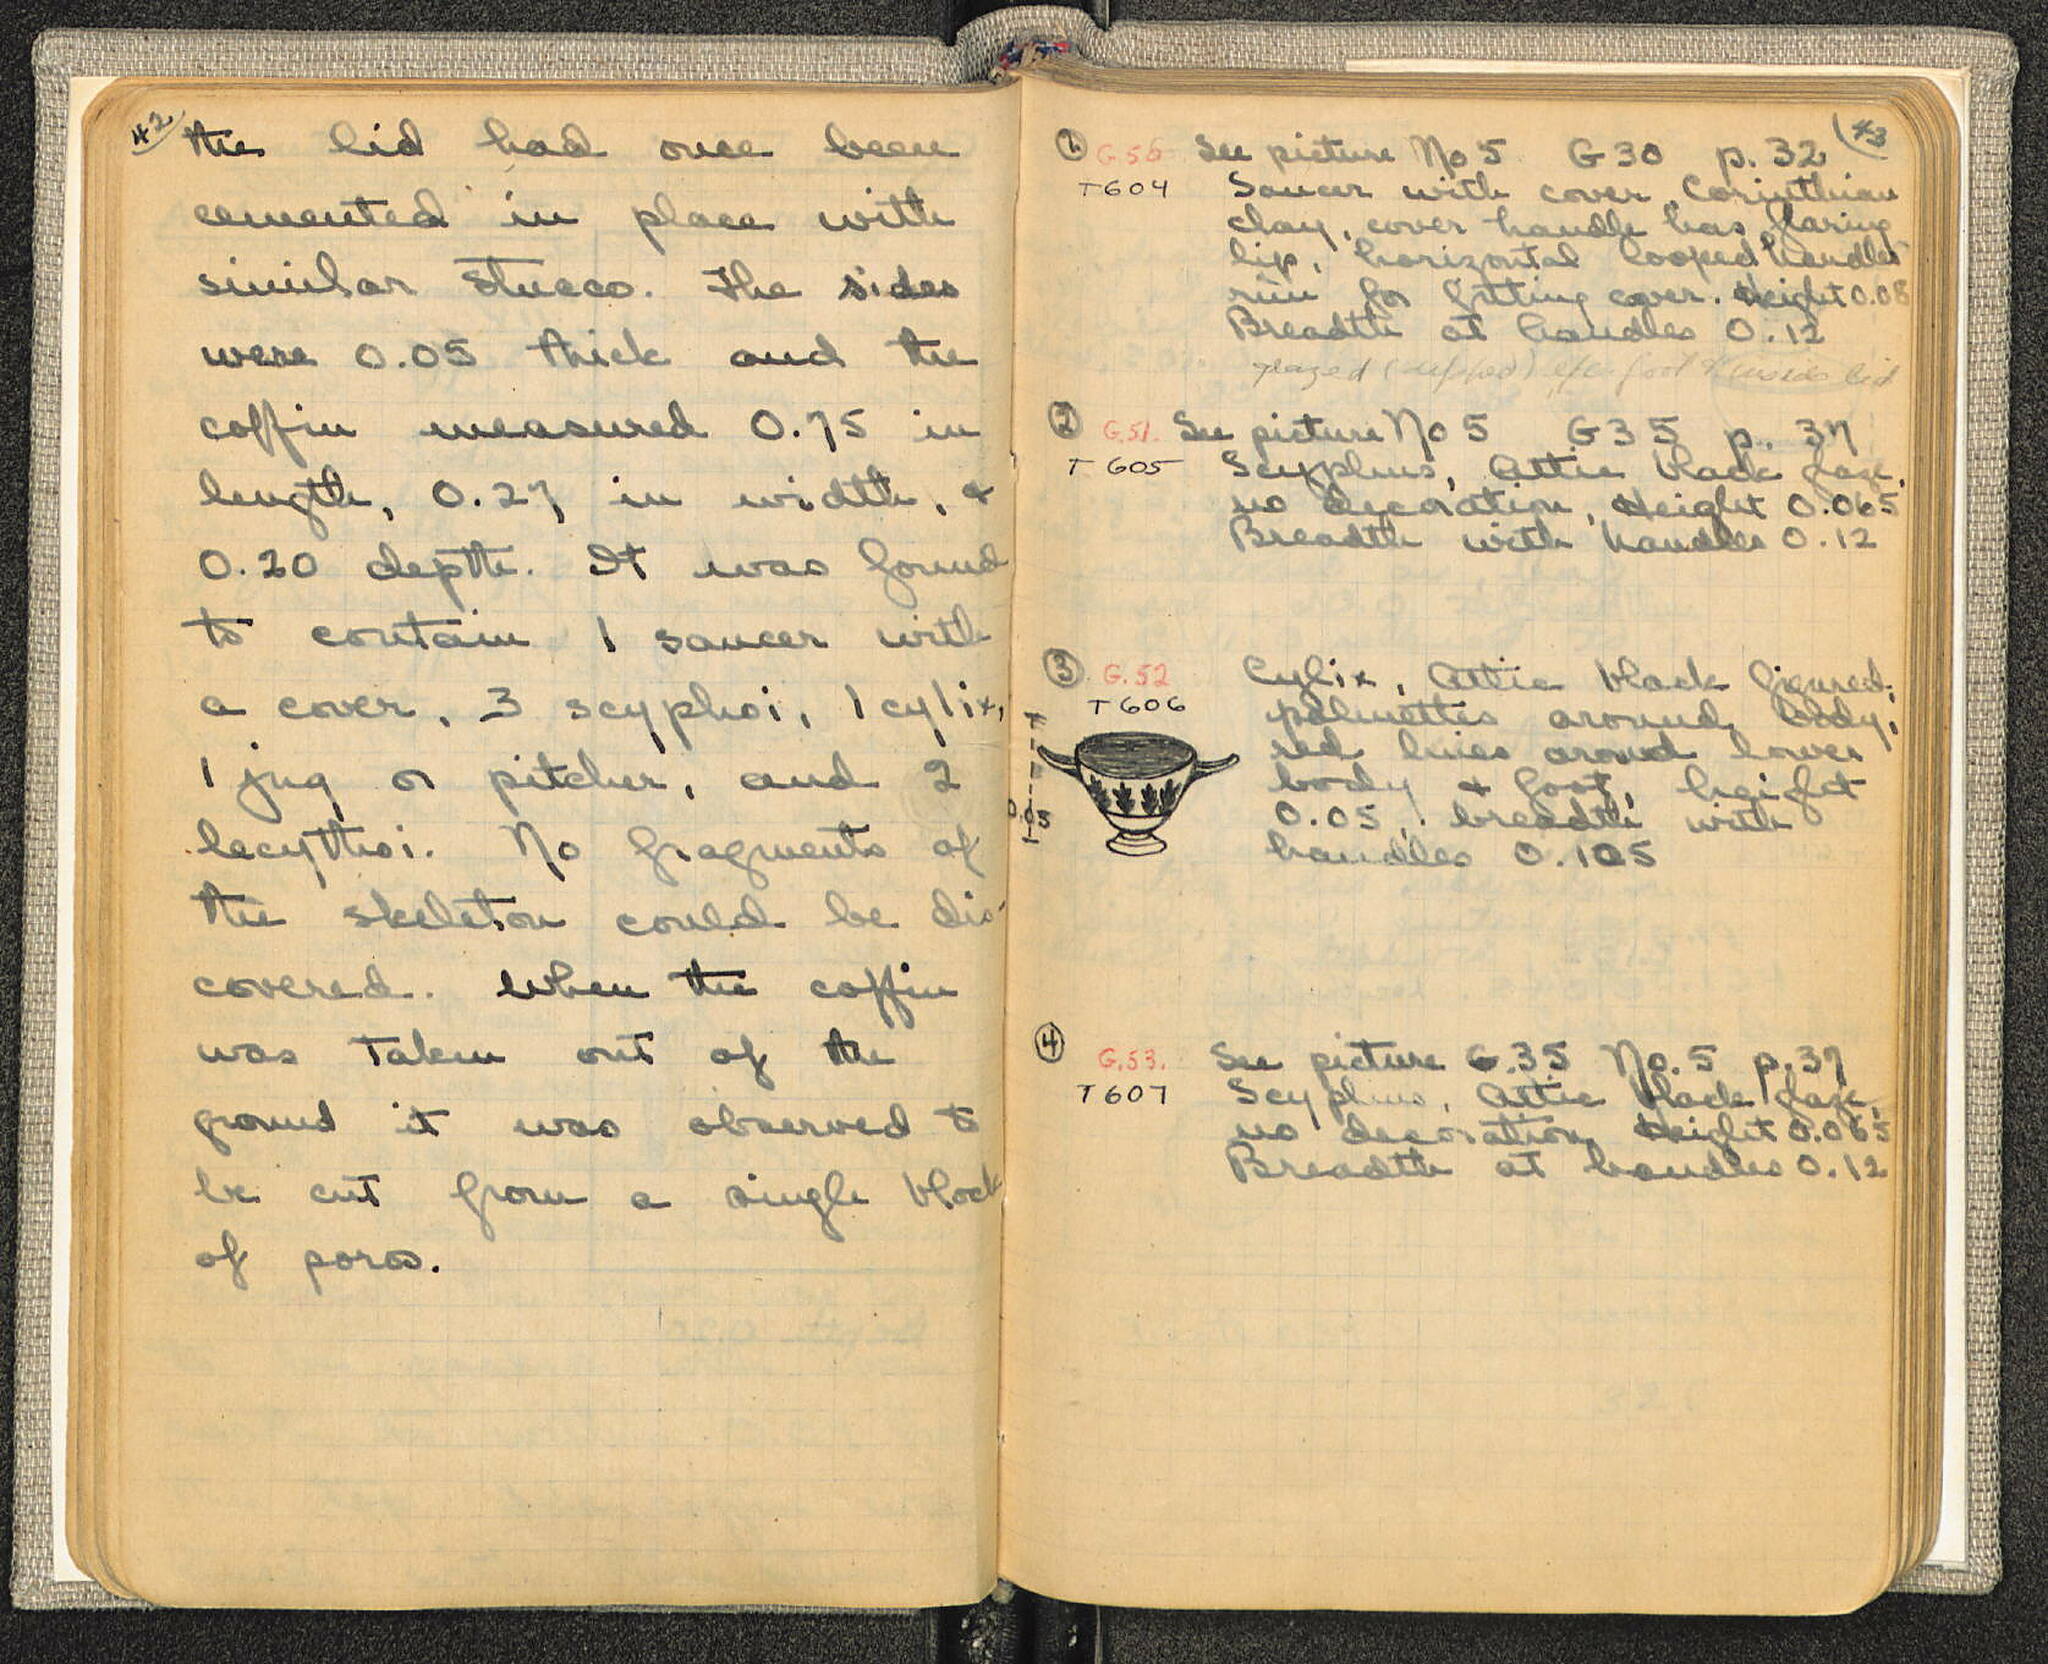 42
the lid had once been
cemented in place with
similar stucco. The sides
were 0.05 thick and the
coffin measured 0.75 in
length, 0.27 in width, &
0.20 depth. It was found
to contain 1 saucer with
a cover, 3 scyphoi, 1 cylix,
1 jug or pitcher, and 2
lecythoi. No fragments of
the skeleton could be dis-
covered. When the coffin
was taken out of the
ground it was observed to
be cut from a single block
of poros.
43
1 See picture No 5 G30 p. 32
T604 Saucer with cover, Corinthian
clay, cover handle has flaring
lip, horizontal looped handles
rim for fitting cover. Height 0.08
Breadth at handles 0.12
glazed foot & inside lid
2 G.51. See picture No 5 G35 p. 37
T605 Scyphus, Attic black glaze,
no decoration, Height 0.065
Breadth with handles 0.12
3 G.52 Cylix, Attic black figured;
T606 palmettes around body,
red lines around lower
body & foot, height
0.05, breadth with
handles 0.105
0.05
4 G.53. See picture G.35 No. 5 p. 37
T607 Scyphus, Attic black glaze,
no decoration, Height 0.065
Breadth at handles 0.12